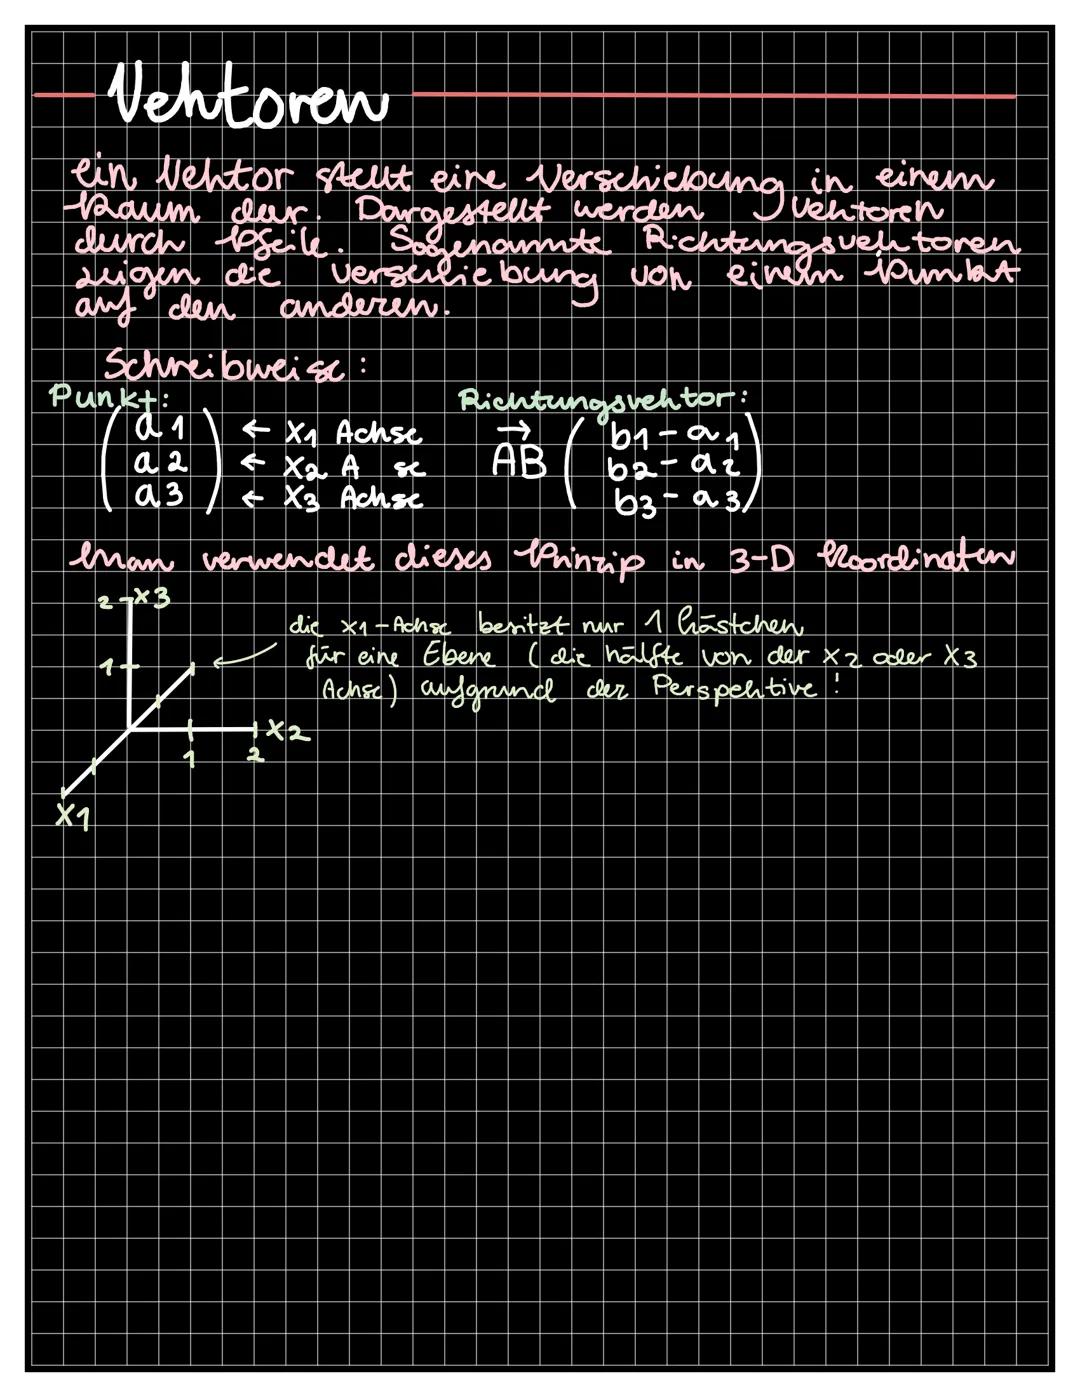 Vektoren
ein Vektor stellt eine Verschiebung in einem
Raum dar. Dargestellt werden Vektoren
durch Pfeile. Sogenannte Richtungsvektoren
zeigen die Verschiebung von einem Punkt
auf den anderen.
Schreibweise:
Punkt: Richtungsvektor:
a1 ← X1 Achse AB b1 - a1
a2 ← X2 A se b2 - a2
a3 ← X3 Achse b3 - a3
Man verwendet dieses Prinzip in 3-D Koordinaten
2 X3
die X1-Achse besitzt nur 1 Kästchen
1 für eine Ebene (die hälfte von der X2 oder X3
Achse) aufgrund der Perspektive!
X2
1 2
X1